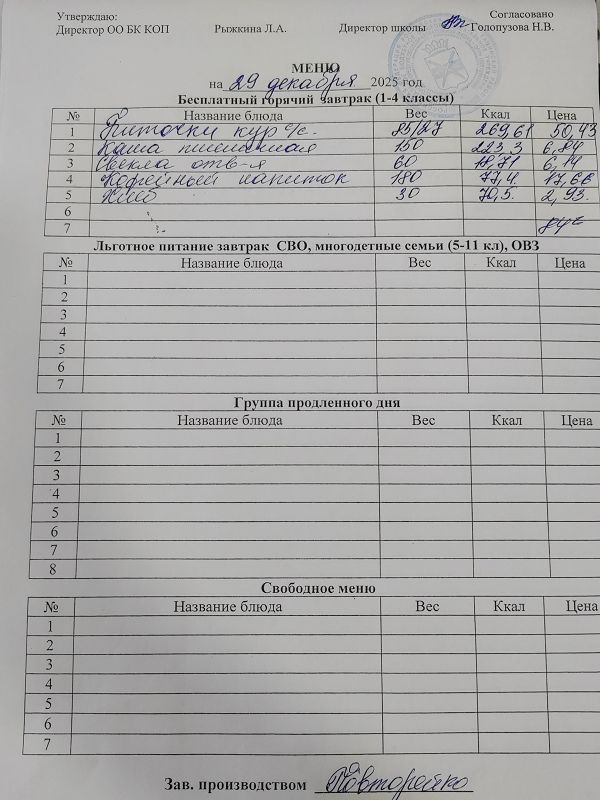 Утверждаю: Согласовано
Директор ОО БК КОП Рыжкина Л.А. Директор школы Голопузова Н.В.
МЕНЮ
на 29 декабря 2025 год
Бесплатный горячий завтрак (1-4 классы)
№ Название блюда Вес Ккал Цена
1 Биточки кур с/с. 85/27 269,61 50,43
2 Каша пшеничная 150 223,3 6.84
3 Свекла отв-я 60 18,71 6,14
4 Кофейный напиток 180 77,4. 17,66
5 Хлеб 30 70,5. 2,93.
6
7
Льготное питание завтрак СВО, многодетные семьи (5-11 кл), ОВЗ
№ Название блюда Вес Ккал Цена
1
2
3
4
5
6
7
Группа продленного дня
№ Название блюда Вес Ккал Цена
1
2
3
4
5
6
7
8
Свободное меню
№ Название блюда Вес Ккал Цена
1
2
3
4
5
6
7
Зав. производством